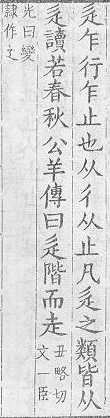 辵乍行乍止也从彳从止凡辵之類皆从
辵讀若春秋公羊傳曰辵階而走
丑略切
文一臣
先曰變
隸作辶